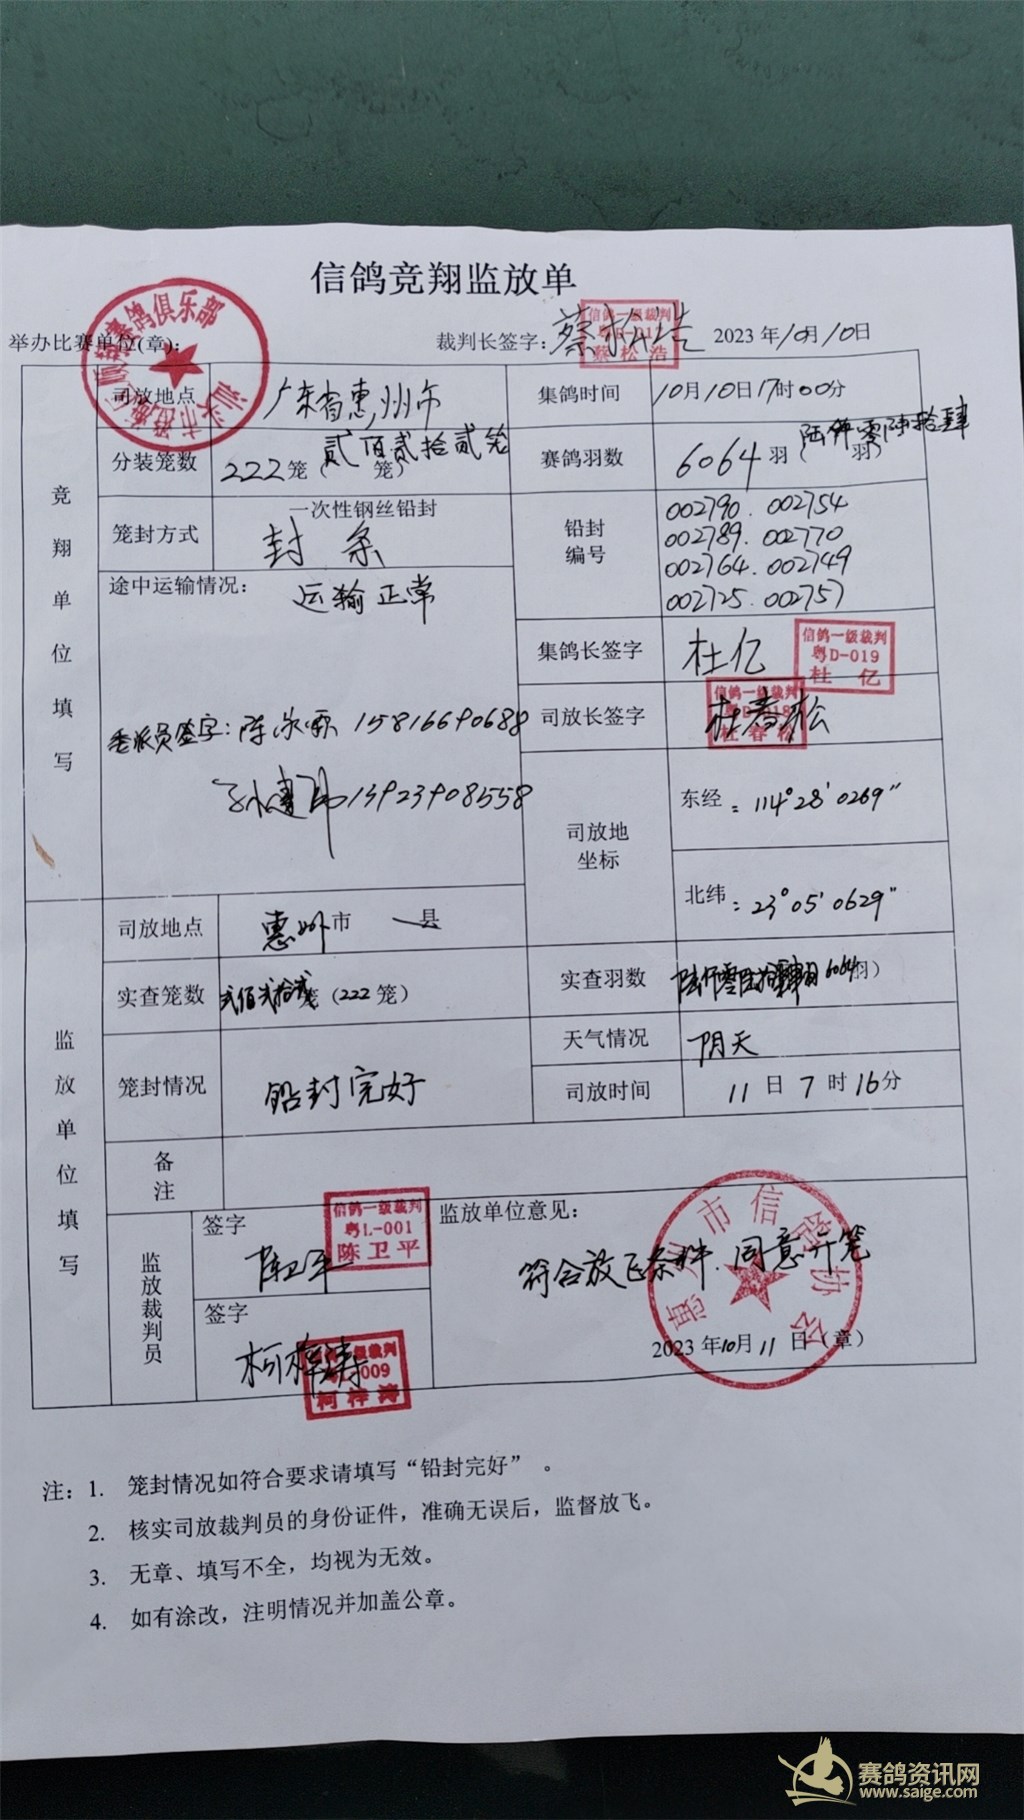 信鸽竞翔监放单
举办比赛单位(章):
裁判长签字: 蔡松浩 2023年10月10日
信鸽一级裁判
蔡松浩
赛鸽俱乐部
汕头市
竞翔单位填写
司放地点 广东省惠州市
集鸽时间 10月10日17时00分
分装笼数 222笼(贰佰贰拾贰笼 笼)
赛鸽羽数 6064羽(陆仟零陆拾肆 羽)
笼封方式 一次性钢丝铅封
封条
铅封编号
002790. 002754
002789. 002770
002764. 002749
002725. 002757
途中运输情况: 运输正常
集鸽长签字 杜亿
信鸽一级裁判
粤D-019
杜亿
司放长签字 杜春松
信鸽一级裁判
杜春松
委派员签字: 陈 15816690688
13923908558
司放地坐标
东经: 114°28′0269″
北纬: 23°05′0629″
监放单位填写
司放地点 惠州市 县
实查笼数 贰佰贰拾贰笼(222笼)
实查羽数 陆仟零陆拾肆羽 6064羽)
天气情况 阴天
笼封情况 铅封完好
司放时间 11日7时16分
备注
监放裁判员
签字 陈卫平
信鸽一级裁判
粤L-001
陈卫平
签字 柯梓涛
信鸽一级裁判
009
柯梓涛
监放单位意见:
符合放飞条件.同意开笼
惠州市信鸽协会
2023年10月11日(章)
注: 1. 笼封情况如符合要求请填写“铅封完好”。
2. 核实司放裁判员的身份证件，准确无误后，监督放飞。
3. 无章、填写不全，均视为无效。
4. 如有涂改，注明情况并加盖公章。
赛鸽资讯网
www.saige.com